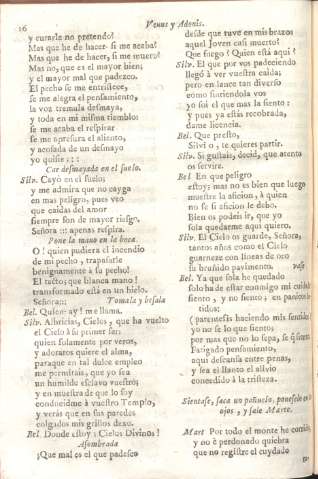 16
Venus y Adonis.
y curarle no pretendo!
Mas que he de hacer si me acaba!
Mas que he de hacer, si me muero!
Mas no, que es el mayor bien;
y el mayor mal que padezco.
El pecho se me entristece,
se me alegra el pensamiento,
la voz tremula desmaya,
y toda en mi misma tiemblo:
se me acaba el respirar
se me apresura el aliento,
y acosada de un desmayo
yo quise : : :
Cae desmayada en el suelo.
Silv. Cayó en el suelo;
y me admira que no cayga
en mas peligro, pues veo
que caídas del amor
siempre son de mayor riesgo.
Señora ::: apenas respira.
Pone la mano en la boca.
O! quien pudiera el incendio
de mi pecho, trapasarle
benignamente á su pecho!
El tacto; que blanca mano!
transformado está en un hielo.
Señora::: Tomala y besala
Bel. Quien: ay! me llama.
Silv. Albricias, Cielos, que ha vuelto
el Cielo á su primer ser:
quien solamente por veros,
y adoraros quiere el alma,
paraque en tal dulce empleo
me permitais, que yo sea
un humilde esclavo vuestro;
y en muestra de que lo soy
conducidme á vuestro Templo,
y verás que en sus paredes
colgados mis grillos dexo.
Bel. Donde estoy; Cielos Divinos!
Asombrada
¡Que mal es el que padezco
desde que tuve en mis brazos
aquel Joven casi muerto!
Que fuego! Quien está aqui?
Silv. El que por vos padeciendo
llegó á ver vuestra caida;
pero en lance tan diverso
como sintiendola vos
yo soi el que mas la siento:
y pues ya estais recobrada,
dame licencia.
Bel. Que presto,
Silvio, te quieres partir.
Silv. Si gustais, decid, que atento
os servire.
Bel En que peligro
estoy; mas no es bien que luego
muestre la aficion, á quien
no se si aficion le debo.
Bien os podeis ir, que yo
sola quedarme aqui quiero.
Silv. El Cielo os guarde, Señora,
tantos años como el Cielo
guarnece con lineas de oro
su bruñido pavimento. vase
Bel. Ya que sola he quedado
solo ha de estar conmigo mi cuidado
siento, y no siento, en parasismos
tidos:
( parentesis haciendo mis sentidos )
yo no se lo que siento;
por mas que no lo sepa, se
Fatigado pensamiento,
aqui descansa entre penas,
y sea el llanto el alivio
concedido á la tristeza.
Sientase, saca un pañuelo, ponesele en los
ojos, y sale Marte.
Mart Por todo el monte he corrido
y no è perdonado quiebra
que no registre el cuydado